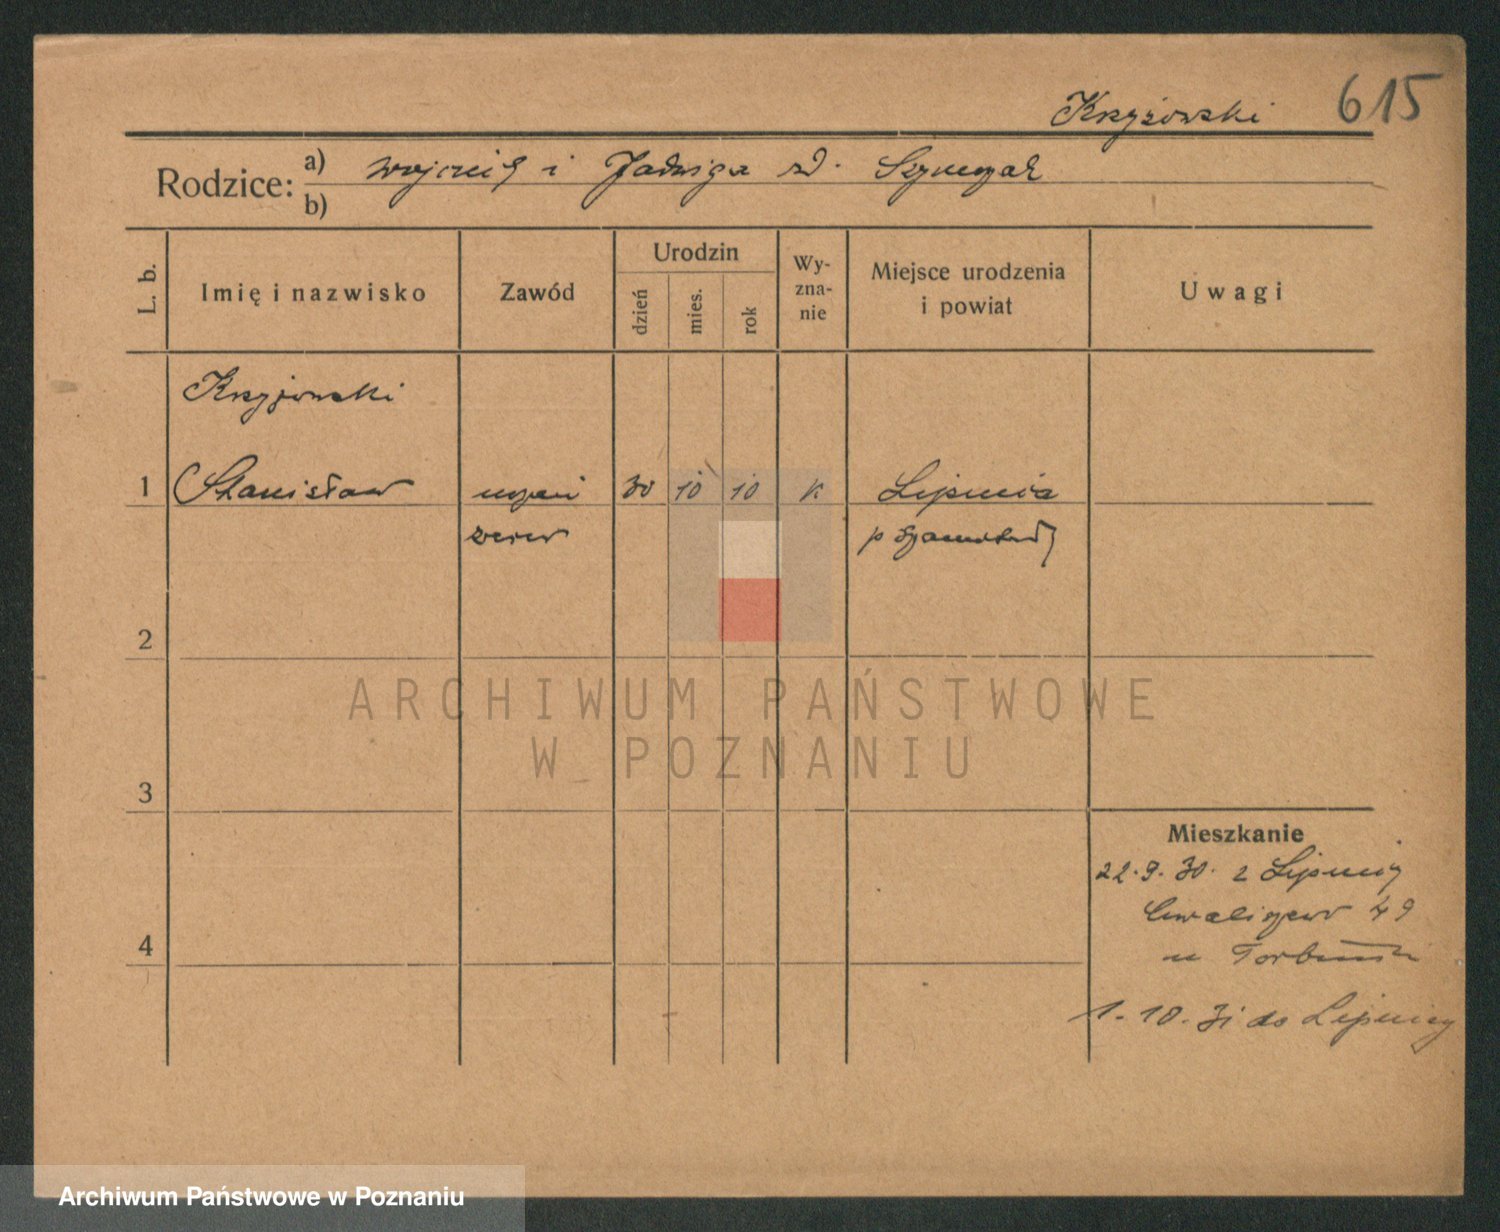 Krzyżowski 615
Rodzice: a) Wojciech i Jadwiga zd. Szymczak
b)
L. b.
Imię i nazwisko
Zawód
Urodzin
dzień
mies.
rok
Wy-
zna-
nie
Miejsce urodzenia
i powiat
Uwagi
Krzyżowski
1 Stanisław uczeń 30 10 10 k Lipnica
p Szamotuły
2
3
4
Mieszkanie
22.9.30. z Lipnicy
Chwaliszewo 49
u
1.10.31 do Lipnicy
ARCHIWUM PAŃSTWOWE
W POZNANIU
Archiwum Państwowe w Poznaniu